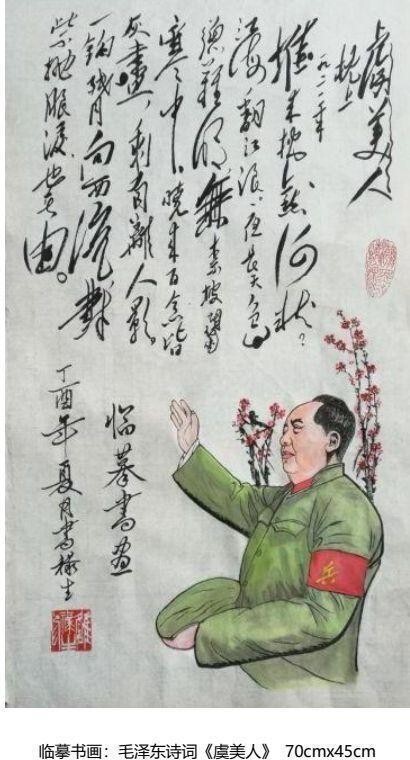 虞美人
枕上
一九二一年
堆来枕上愁何状？
江海翻江浪。夜长天色
总难明，無奈披
寒中。晓来百念皆
灰烬，剩有離人影。
一钩残月向西流，對
此不抛眼泪也無由。
临摹書画
丁酉年夏月書
兵
临摹书画：毛泽东诗词《虞美人》 70cmx45cm